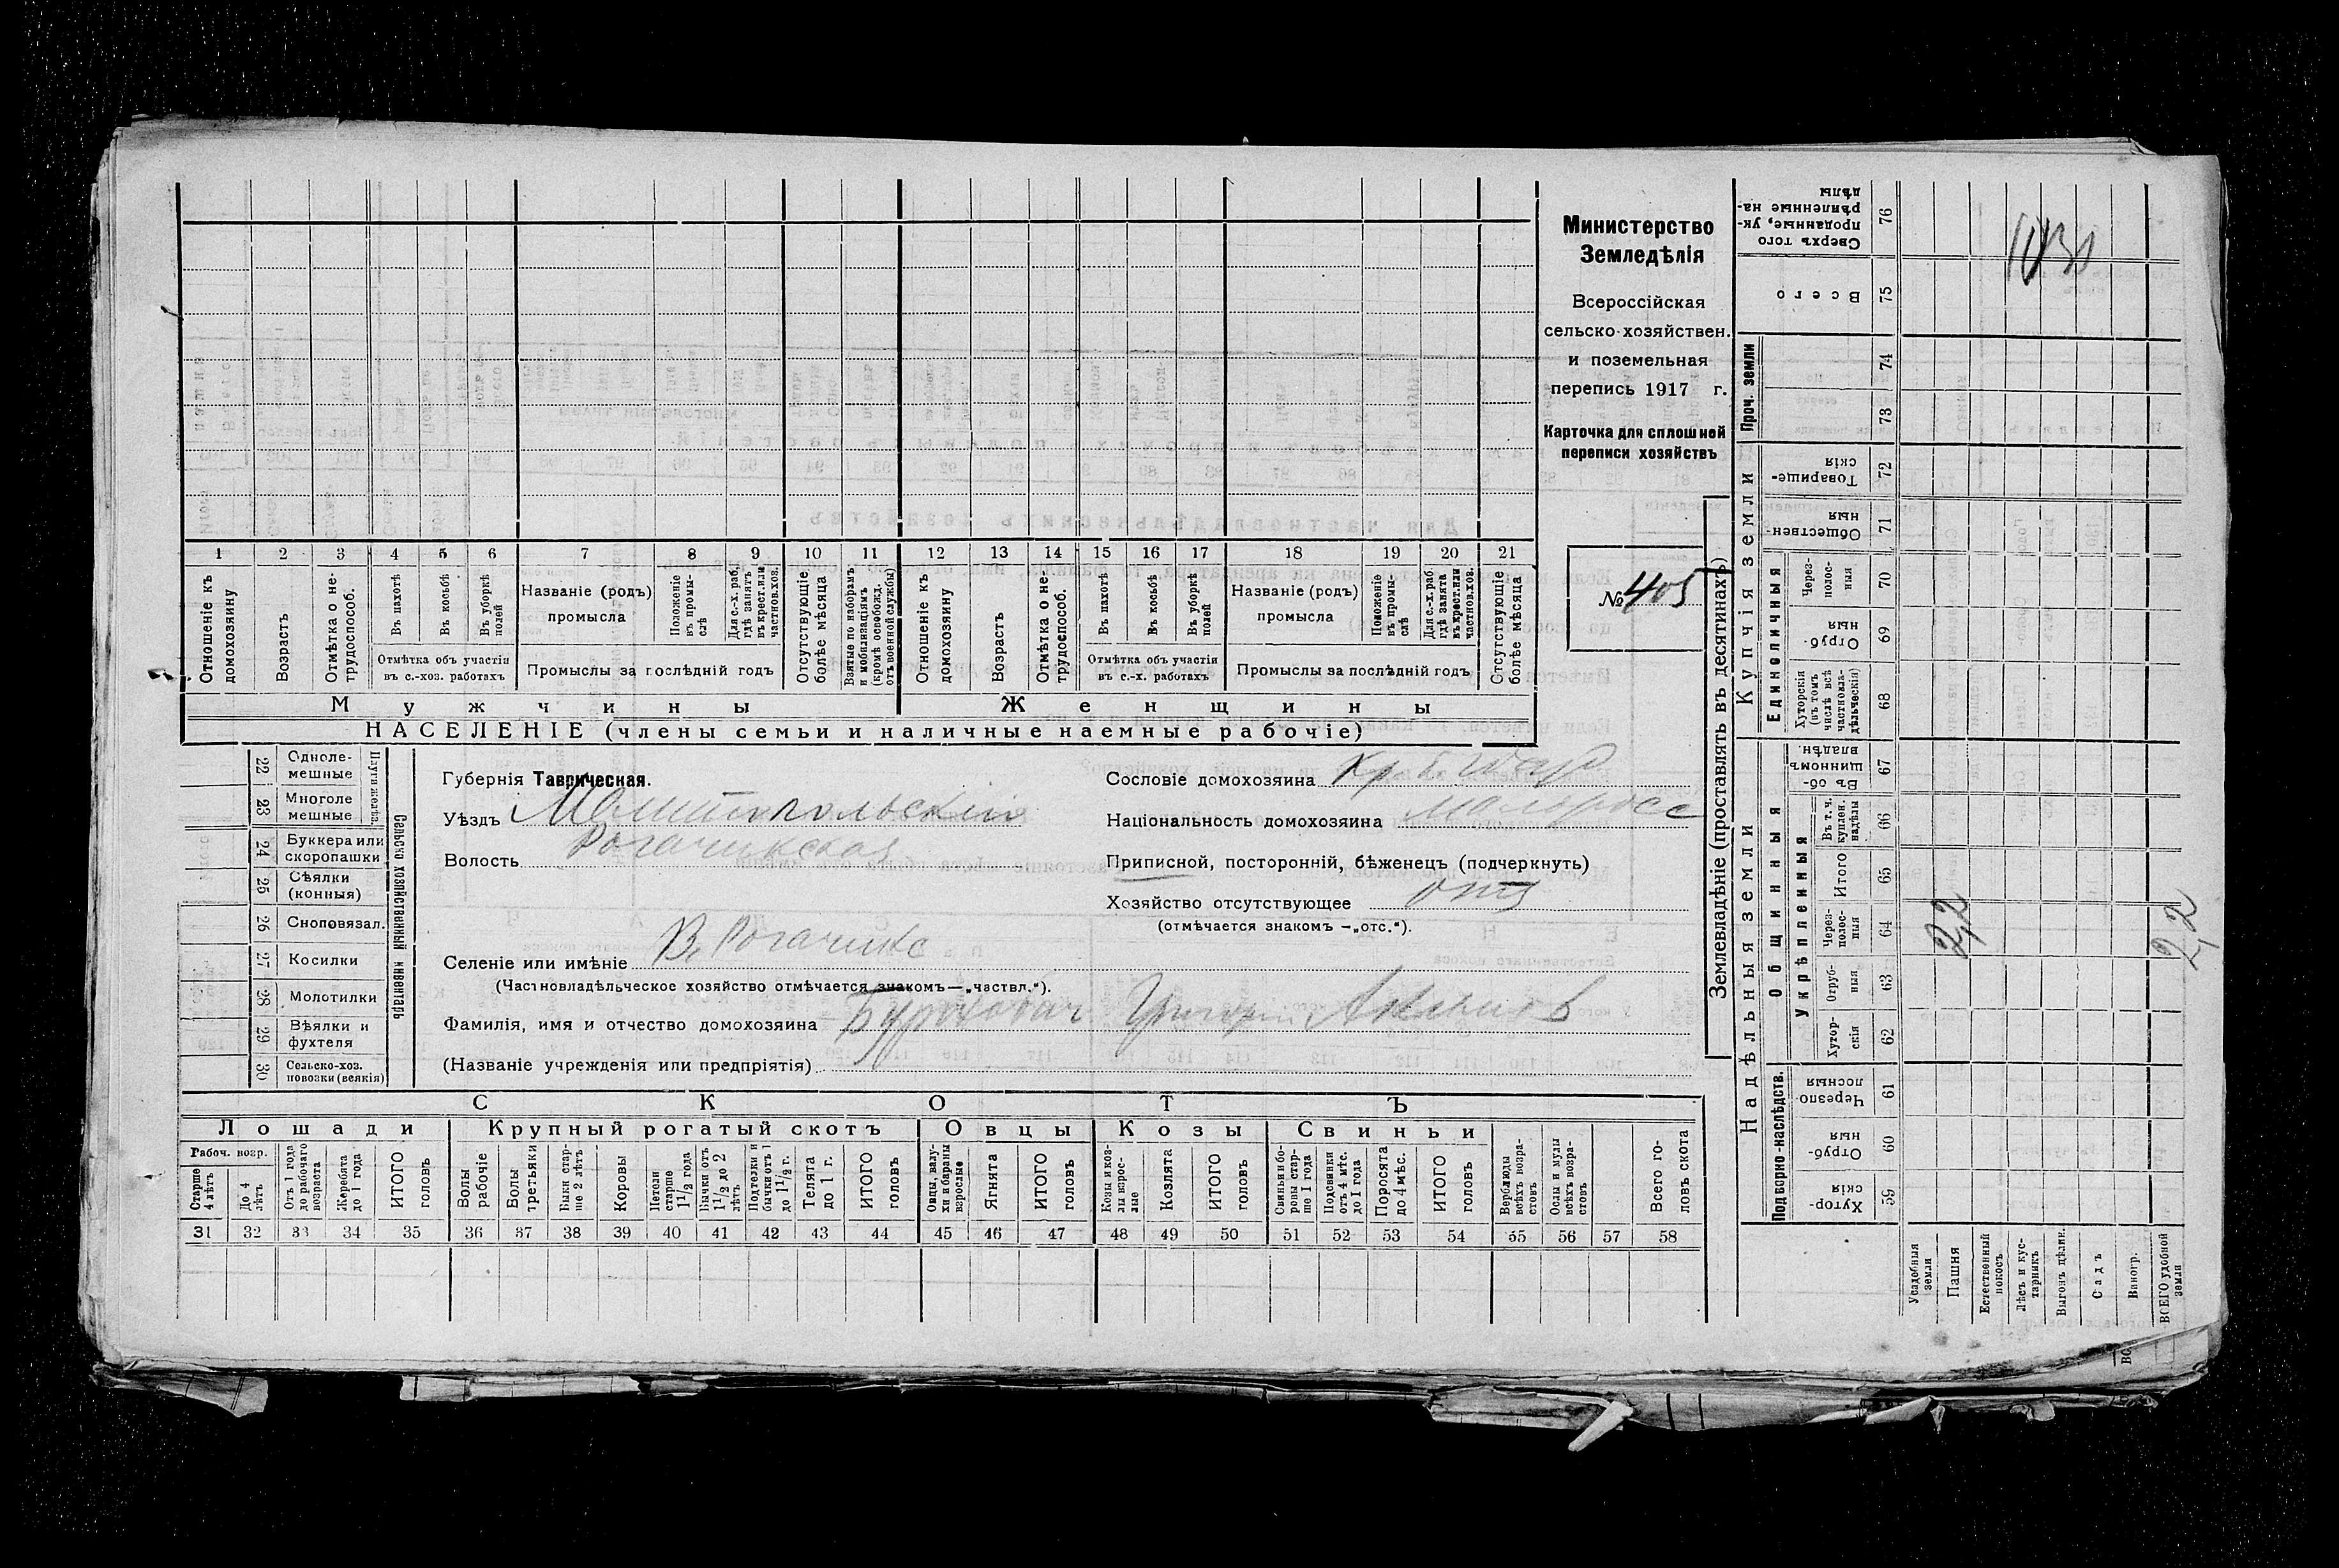 Министерство
Земледѣлія
Всероссійская
сельско-хозяйствен.
и поземельная
перепись 1917 г.
Карточка для сплошной
переписи хозяйствъ
№ 405
1 2 3 4 5 6 7 8 9 10 11 12 13 14 15 16 17 18 19 20 21
Отношеніе къ домохозяину
Возрастъ
Отмѣтка о нетрудоспособ.
Въ пахотѣ
Въ косьбѣ
Въ уборкѣ полей
Отмѣтка объ участіи въ с.-хоз. работахъ
Названіе (родъ) промысла
Положеніе въ промыслѣ
Для с.-х. раб. гдѣ занятъ въ крест. или частнов. хоз.
Промыслы за послѣдній годъ
Отсутствующіе болѣе мѣсяца
Взятые по наборамъ и мобилизаціямъ (кромѣ освобожд. отъ военной службы)
Отношеніе къ домохозяину
Возрастъ
Отмѣтка о нетрудоспособ.
Въ пахотѣ
Въ косьбѣ
Въ уборкѣ полей
Отмѣтка объ участіи въ с.-х. работахъ
Названіе (родъ) промысла
Положеніе въ промыслѣ
Для с.-х. раб. гдѣ занята въ крест. или частнов. хоз.
Промыслы за послѣдній годъ
Отсутствующіе болѣе мѣсяца
Мужчины Женщины
НАСЕЛЕНІЕ (члены семьи и наличные наемные рабочіе)
22 Одноле-
мешные
23 Многоле
мешные
Плуги желѣз.
24 Буккера или
скоропашки
25 Сѣялки
(конныя)
26 Сноповязал.
27 Косилки
28 Молотилки
29 Вѣялки и
фухтеля
30 Сельско-хоз.
повозки (всякія)
Сельско хозяйственный инвентарь
Губернія Таврическая.
Уѣздъ Мелитопольскій
Волость Рогачикская
Селеніе или имѣніе В. Рогачикъ
(Частновладѣльческое хозяйство отмѣчается знакомъ—„частвл.“).
Фамилія, имя и отчество домохозяина Григорій
(Названіе учрежденія или предпріятія)
Сословіе домохозяина
Національность домохозяина малоросс
Приписной, посторонній, бѣженецъ (подчеркнуть)
Хозяйство отсутствующее отс
(отмѣчается знакомъ —„отс.“).
СКОТЪ
Лошади Крупный рогатый скотъ Овцы Козы Свиньи
Рабоч. возр.
Старше 4 лѣтъ
До 4 лѣтъ
Отъ 1 года до рабочаго возраста
Жеребята до 1 года
ИТОГО головъ
Волы рабочіе
Волы третьяки
Быки старше 2 лѣтъ
Коровы
Нетели старше 1 1/2 года
Бычки отъ 1 1/2 до 2 лѣтъ
Подтелки и бычки отъ 1 до 1 1/2 г.
Телята до 1 г.
ИТОГО головъ
Овцы, валухи и бараны взрослые
Ягнята
ИТОГО головъ
Козы и козлы взрослые
Козлята
ИТОГО головъ
Свиньи и боровы старше 1 года
Подсвинки отъ 4 мѣс. до 1 года
Поросята до 4 мѣс.
ИТОГО головъ
Верблюды всѣхъ возрастовъ
Ослы и мулы всѣхъ возрастовъ
Всего головъ скота
31 32 33 34 35 36 37 38 39 40 41 42 43 44 45 46 47 48 49 50 51 52 53 54 55 56 57 58
Землевладѣніе (проставлять въ десятинахъ)
Надѣльныя земли Купчія земли Проч. земли
Подворно-наслѣдств. Общинныя Единоличныя
Укрѣпленныя
Хуторскія 59
Отрубныя 60
Черезполосныя 61
Хуторскія 62
Отрубныя 63
Черезполосныя 64
Итого 65
Въ т. ч. куплен. надѣлы 66
Въ общинномъ владѣн. 67
Хуторскія (въ томъ числѣ всѣ частновладѣльческія) 68
Отрубныя 69
Черезполосныя 70
Общественныя 71
Товарищескія 72
73
74
Всего 75
Сверхъ того проданные, укрѣпленные надѣлы 76
Усадебныя земли
Пашня
Естественный покосъ
Лѣсъ и кустарникъ
Выгонъ цѣлин.
Садъ
Виногр.
ВСЕГО удобной земли
2,2
2,2